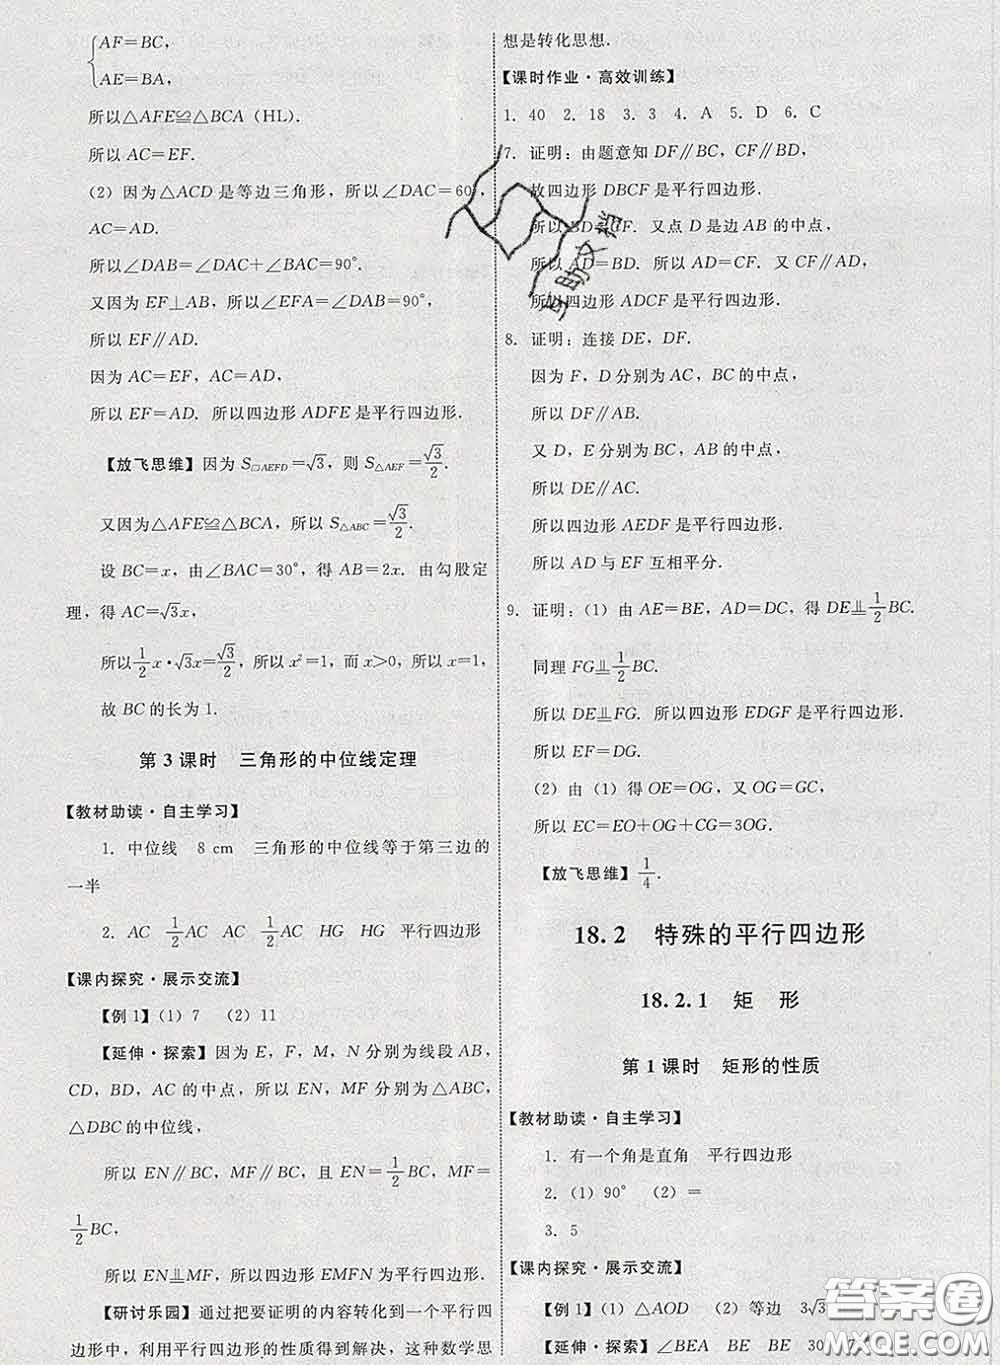 AF=BC,
AE=BA,
所以△AFE≌△BCA(HL).
所以 AC=EF.
(2) 因为△ACD是等边三角形，所以∠DAC=60°,
AC=AD.
所以∠DAB=∠DAC+∠BAC=90°.
又因为 EF⊥AB，所以∠EFA=∠DAB=90°,
所以 EF∥AD.
因为 AC=EF，AC=AD,
所以 EF=AD. 所以四边形 ADFE 是平行四边形.
【放飞思维】因为 S▱AEFD=√3，则 S△AEF=√3/2.
又因为△AFE≌△BCA，所以 S△ABC=√3/2.
设 BC=x，由∠BAC=30°，得 AB=2x. 由勾股定
理，得 AC=√3x,
所以 1/2 x·√3x=√3/2，所以 x²=1，而 x>0，所以 x=1,
故 BC 的长为 1.
第 3 课时 三角形的中位线定理
【教材助读·自主学习】
1. 中位线 8 cm 三角形的中位线等于第三边的
一半
2. AC 1/2 AC AC 1/2 AC HG HG 平行四边形
【课内探究·展示交流】
【例 1】(1) 7 (2) 11
【延伸·探索】因为 E，F，M，N 分别为线段 AB,
CD，BD，AC 的中点，所以 EN，MF 分别为△ABC,
△DBC 的中位线,
所以 EN∥BC，MF∥BC，且 EN=1/2 BC，MF=
1/2 BC,
所以 EN⫫MF，所以四边形 EMFN 为平行四边形.
【研讨乐园】通过把要证明的内容转化到一个平行四
边形中，利用平行四边形的性质得到解决，这种数学思
想是转化思想.
【课时作业·高效训练】
1. 40 2. 18 3. 3 4. A 5. D 6. C
7. 证明：由题意知 DF∥BC，CF∥BD,
故四边形 DBCF 是平行四边形.
所以 BD=CF. 又点 D 是边 AB 的中点,
所以 AD=BD. 所以 AD=CF. 又 CF∥AD,
所以四边形 ADCF 是平行四边形.
8. 证明：连接 DE，DF.
因为 F，D 分别为 AC，BC 的中点,
所以 DF∥AB.
又 D，E 分别为 BC，AB 的中点,
所以 DE∥AC.
所以四边形 AEDF 是平行四边形.
所以 AD 与 EF 互相平分.
9. 证明：(1) 由 AE=BE，AD=DC，得 DE⫫1/2 BC.
同理 FG⫫1/2 BC.
所以 DE⫫FG. 所以四边形 EDGF 是平行四边形.
所以 EF=DG.
(2) 由 (1) 得 OE=OG，又 OG=GC,
所以 EC=EO+OG+CG=3OG.
【放飞思维】1/4.
18.2 特殊的平行四边形
18.2.1 矩 形
第 1 课时 矩形的性质
【教材助读·自主学习】
1. 有一个角是直角 平行四边形
2. (1) 90° (2) =
3. 5
【课内探究·展示交流】
【例 1】(1) △AOD (2) 等边 3√3
【延伸·探索】∠BEA BE BE 30
互助文档
答案圈
MXQE.COM